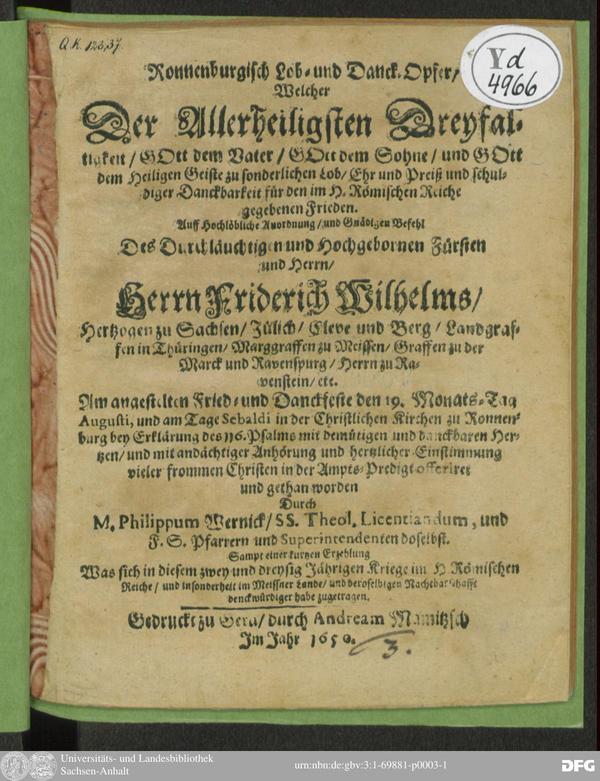 Q.K. 123,37.
Yd
4966
Ronnenburgisch Lob- und Danck-Opfer/
Welcher
Der Allerheiligsten Dreyfal-
tigkeit / GOtt dem Vater / GOtt dem Sohne / und GOtt
dem Heiligen Geiste zu sonderlichen Lob/ Ehr und Preiß und schul-
diger Danckbarkeit für den im H. Römischen Reiche
gegebenen Frieden.
Auff Hochlöbliche Anordnung/ und Gnädigen Befehl
Des Durchläuchtigen und Hochgebornen Fürsten
und Herrn/
Herrn Friderich Wilhelms/
Hertzogen zu Sachsen/ Jülich/ Cleve und Berg / Landgraf-
fen in Thüringen/ Marggraffen zu Meissen/ Graffen zu der
Marck und Ravenspurg/ Herrn zu Ra-
venstein/ etc.
Am angestelten Fried- und Danckfeste den 19. Monats-Tag
Augusti, und am Tage Sebaldi in der Christlichen Kirchen zu Ronnen-
burg bey Erklärung des 116. Psalms mit demütigen und danckbaren Her-
tzen/ und mit andächtiger Anhörung und hertzlicher Einstimmung
vieler frommen Christen in der Ampts-Predigt offeriret
und gethan worden
Durch
M. Philippum Wernick/ SS. Theol. Licentiandum, und
F. S. Pfarrern und Superintendenten doselbst.
Sampt einer kurtzen Erzehlung
Was sich in diesem zwey und dreysig Jährigen Kriege im H Römischen
Reiche / und insonderheit im Meissner Lande/ und deroselbigen Nachtbarschafft
denckwürdiger habe zugetragen.
Gedruckt zu Gera/ durch Andream Mamitzsch
Im Jahr 1650.
3.
Universitäts- und Landesbibliothek
Sachsen-Anhalt
urn:nbn:de:gbv:3:1-69881-p0003-1
DFG